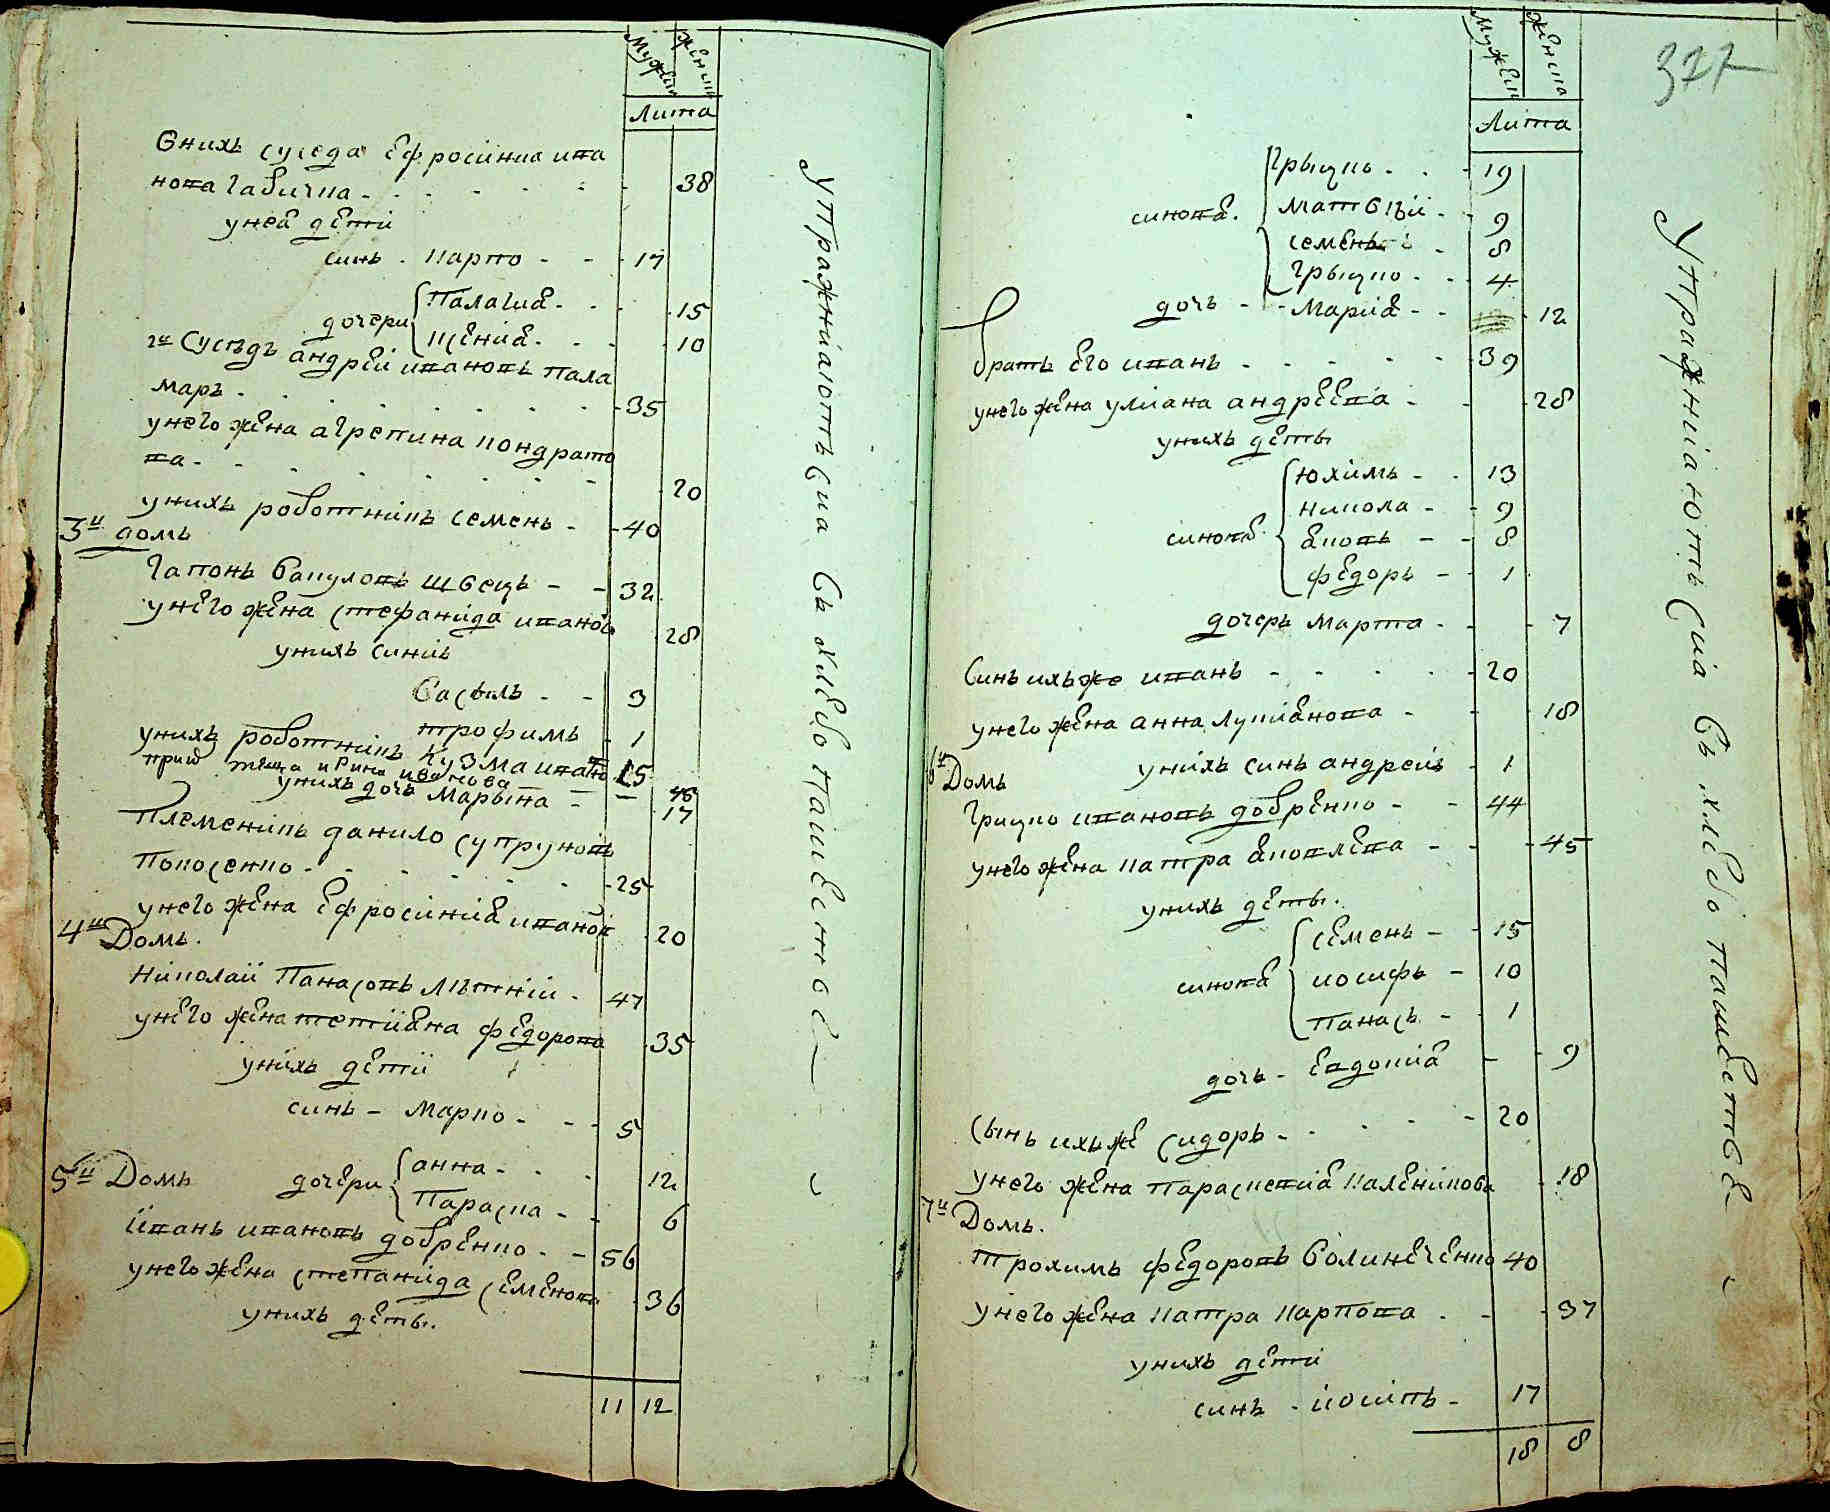 Мужеи
Женша
Лита
Внихъ суседа Ефросиниа ива
нова Габичка - 38
унеа дети
синъ - Карпо - 17
дочери Палагиа - 15
Ксениа - 10
2й Суседъ андрей ивановъ пала
маръ - 35
унего жена агрепина кондрато
ва - 20
унихъ роботникъ семенъ - 40
3й домъ
Гапонъ вакуловъ швецъ - 32
унего жена стефанида иванов 28
унихъ синиъ
Василь - 3
трофимъ 1
унихъ роботникъ кузма иванов 15
теща ирина иванова 48
унихъ дочь Марына - 17
Племеникъ данило супруновъ
Покосенко - 25
унего жена Ефросиниа иванов 20
4й Домъ.
Николаи Панасовъ Лѣтнiй - 47
унего жена тетиана федорова 35
унихъ дети
синъ - Марко - 5
дочери анна - 12
Параска - 6
5й Домъ
Иванъ ивановъ добренко - 56
унего жена степанида семенова 36
унихъ деты.
11 12
Упражниаютъсиа въ хлебопашестве
327
Мужеи
Женша
Лита
синове. Грыцко - 19
Матвѣй - 9
семенъ - 8
Грыцко - 4
дочь - Мариа - 12
братъ его иванъ - 39
унего жена улиана андреева - 28
унихъ деты
синове Юхимъ - 13
никола - 9
аковъ - 8
федоръ - 1
дочеръ Марта - 7
Синъ ихъже иванъ - 20
унего жена анна лукианова - 18
унихъ синъ андрей - 1
6й Домъ
Грицко ивановъ добренко - 44
унего жена катра аковлева - 45
унихъ деты.
синове семенъ - 15
иосифъ - 10
Панасъ - 1
дочь - Евдокиа - 9
Сынъ ихъже сидоръ - 20
унего жена Параскевиа Каленикова 18
7й Домъ.
трохимъ федоровъ Волинеченко 40
унего жена катра карпова - 37
унихъ дети
синъ - иосипъ - 17
18 8
Упражниаютъсиа въ хлебопашестве